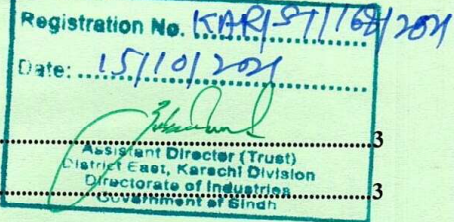 Registration No. KAR/ST/168/2021
Date: 15/10/2021
3
Assistant Director (Trust)
District East, Karachi Division
Directorate of Industries
3
Government of Sindh